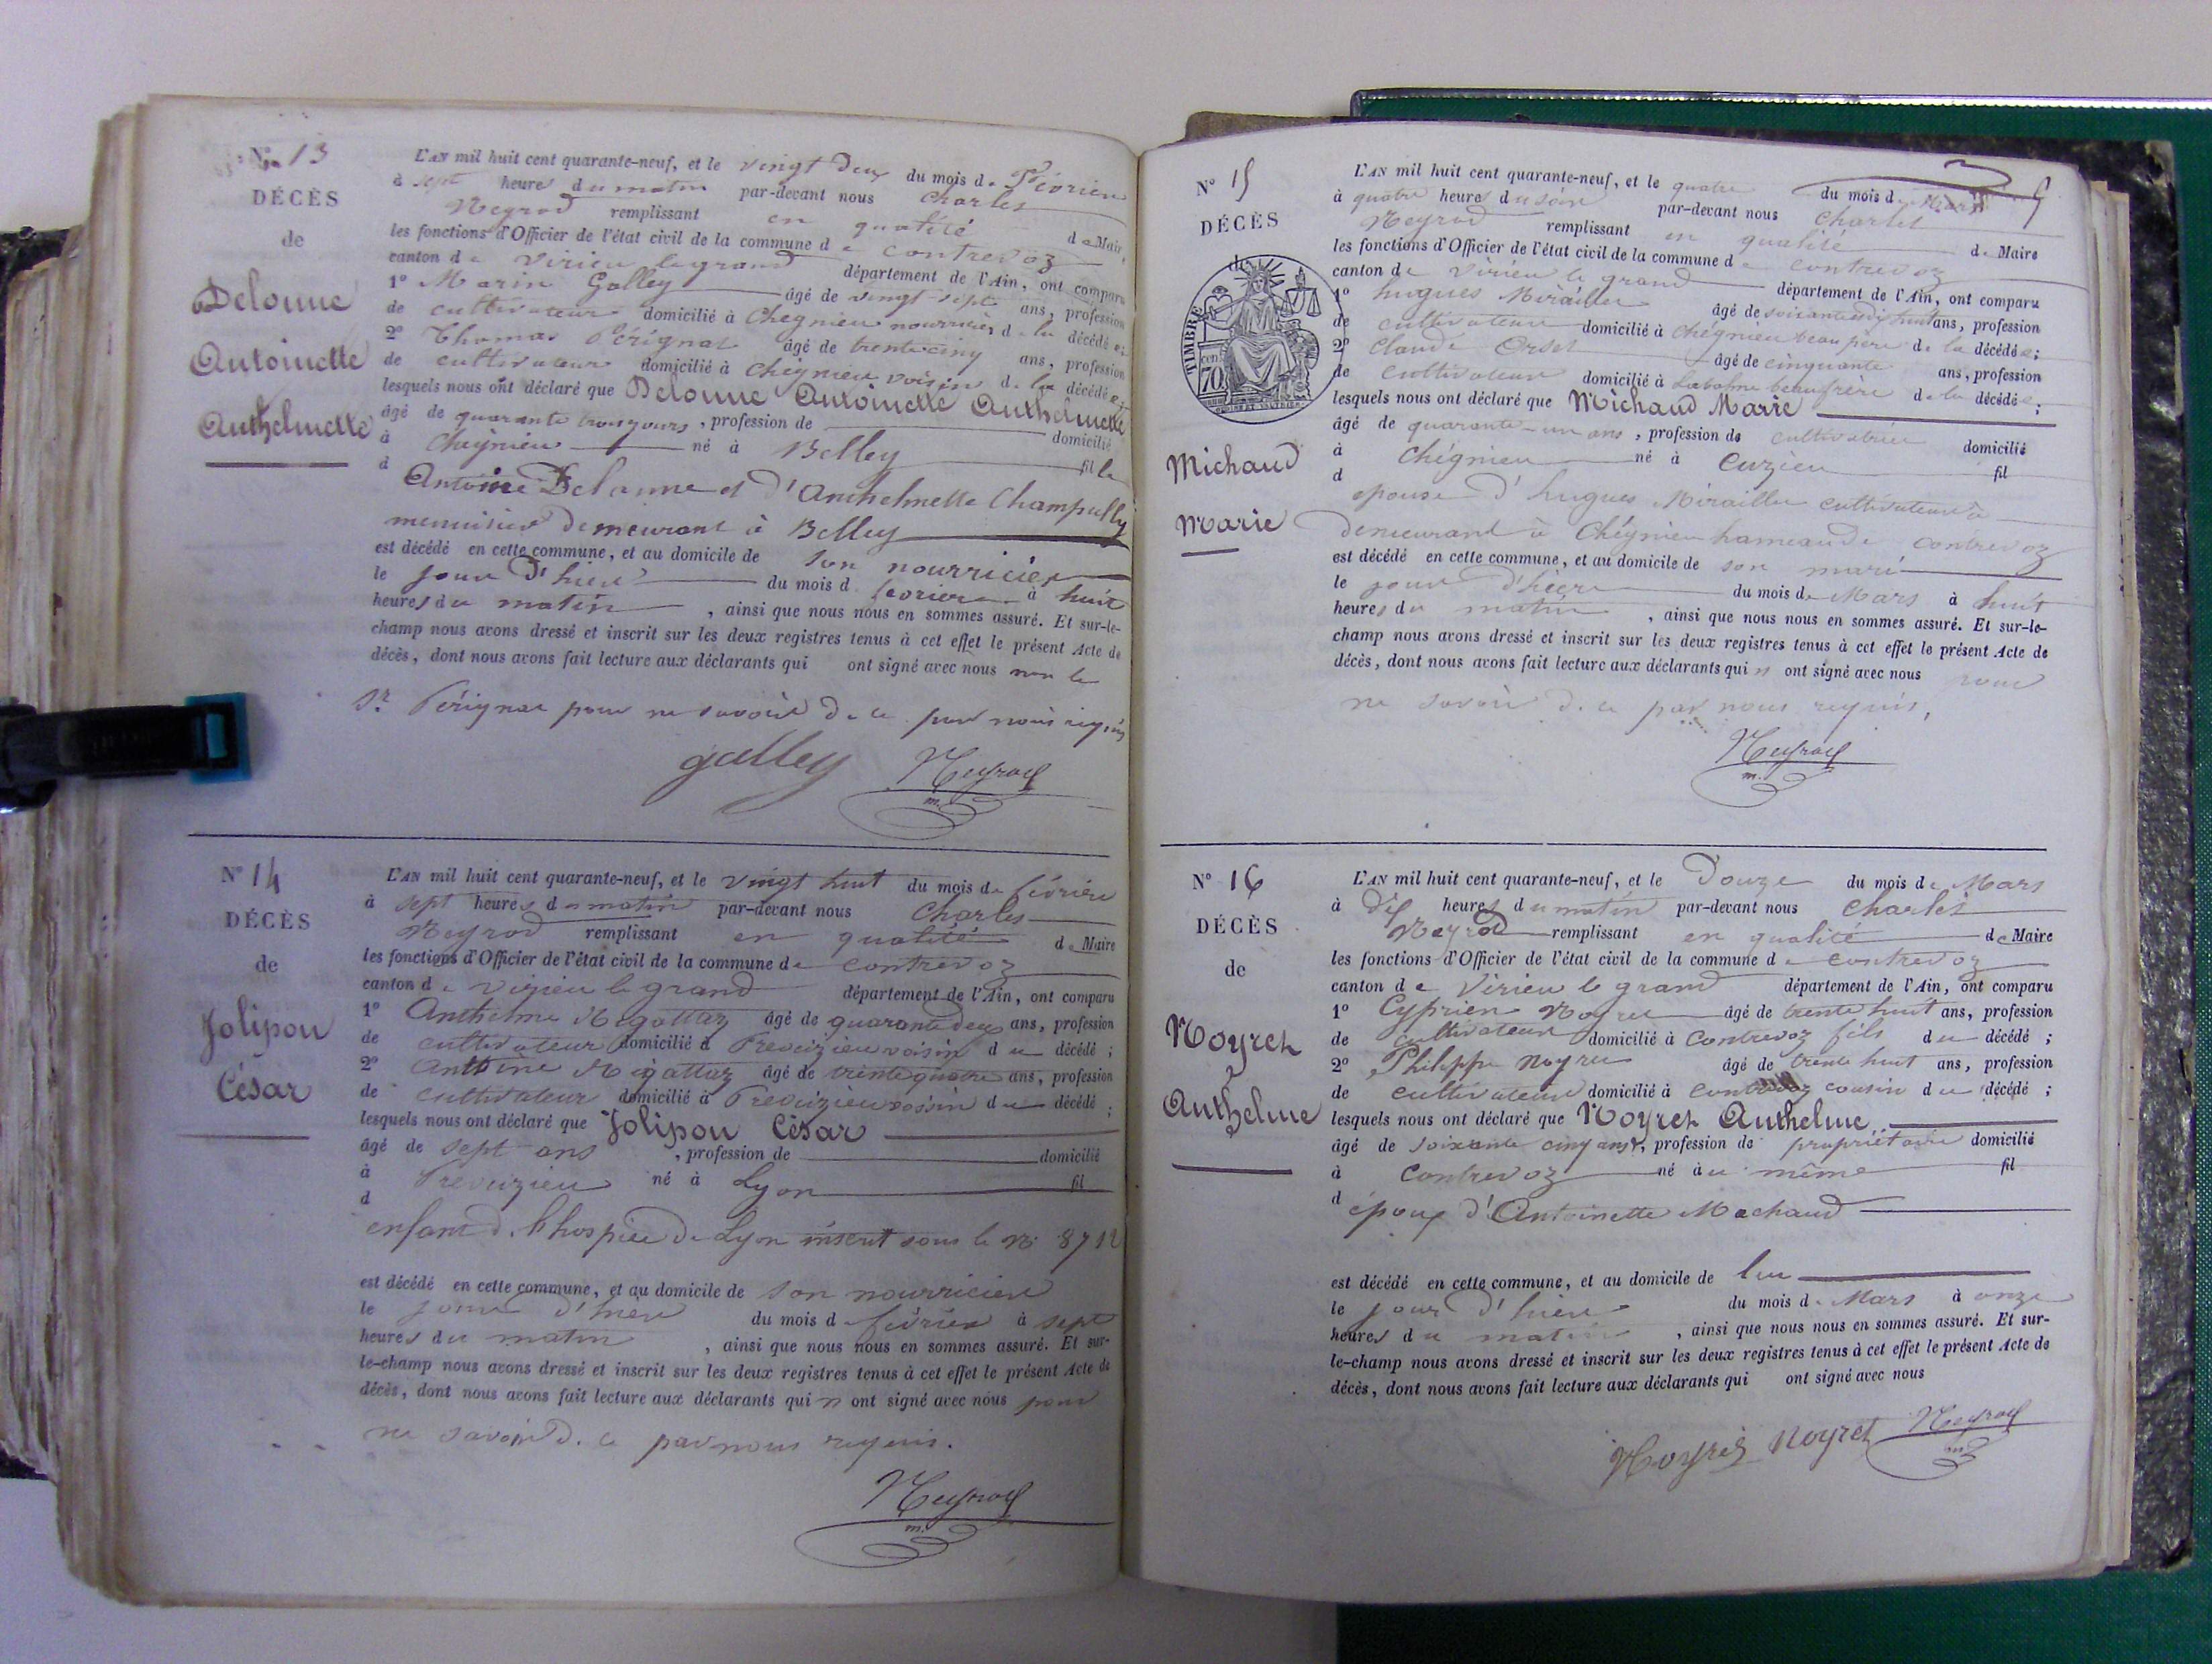 N° 13
DÉCÈS
de
Delonne
Antoinette
Anthelmette
L'AN mil huit cent quarante-neuf, et le vingt deux du mois de Février
à sept heures du matin par-devant nous Charles
Neyrod remplissant en qualité de Maire
les fonctions d'Officier de l'état civil de la commune de Contrevoz
canton de Virieu le grand département de l'Ain, ont comparu
1° Marin Golley âgé de vingt-sept ans, profession
de cultivateur domicilié à Chegnieu nourricier de la décédée;
2° Thomas Pérignat âgé de trente cinq ans, profession
de cultivateur domicilié à Chegnieu voisin de la décédée;
lesquels nous ont déclaré que Delonne Antoinette Anthelmette
âgé de quarante trois jours, profession de domicilié
à Chegnieu né à Belley fille
d Antoine Delonne et d'Anthelmette Champully
menuisier demeurant à Belley
est décédé en cette commune, et au domicile de son nourricier
le jour d'hier du mois d février à huit
heures du matin, ainsi que nous nous en sommes assuré. Et sur-le-
champ nous avons dressé et inscrit sur les deux registres tenus à cet effet le présent Acte de
décès, dont nous avons fait lecture aux déclarants qui ont signé avec nous non le
Sr Pérignat pour ne savoir de ce par nous requis
galley Neyrod
m.
N° 14
DÉCÈS
de
Jolipou
César
L'AN mil huit cent quarante-neuf, et le vingt huit du mois de février
à sept heures du matin par-devant nous Charles
Neyrod remplissant en qualité de Maire
les fonctions d'Officier de l'état civil de la commune de Contrevoz
canton de Virieu le grand département de l'Ain, ont comparu
1° Anthelme Migottaz âgé de quarante deux ans, profession
de cultivateur domicilié à Preveizieu voisin du décédé;
2° Antoine Migottaz âgé de trente quatre ans, profession
de cultivateur domicilié à Preveizieu voisin du décédé;
lesquels nous ont déclaré que Jolipou César
âgé de sept ans, profession de domicilié
à Preveizieu né à Lyon fil
d
enfant d. l'hospice de Lyon inscrit sous le N° 8712
est décédé en cette commune, et au domicile de son nourricier
le jour d'hier du mois de février à sept
heures du matin, ainsi que nous nous en sommes assuré. Et sur-
le-champ nous avons dressé et inscrit sur les deux registres tenus à cet effet le présent Acte de
décès, dont nous avons fait lecture aux déclarants qui n ont signé avec nous pour
ne savoir d. ce par nous requis.
Neyrod
m.
N° 15
DÉCÈS
de
TIMBRE
70 cent
Michaud
Marie
L'AN mil huit cent quarante-neuf, et le quatre du mois de Mars
à quatre heures du soir par-devant nous Charles
Neyrod remplissant en qualité de Maire
les fonctions d'Officier de l'état civil de la commune de Contrevoz
canton de Virieu le grand département de l'Ain, ont comparu
1° hugues Mirailler âgé de soixante dix huit ans, profession
de cultivateur domicilié à Chégnieu beau pere de la décédée;
2° Claude Orset âgé de cinquante ans, profession
de cultivateur domicilié à beaufrère de la décédée;
lesquels nous ont déclaré que Michaud Marie
âgé de quarante-un ans, profession de cultivatrice domicilié
à Chégnieu né à Cuzieu fil
d
épouse d'hugues Mirailler cultivateur à
demeurant à Chégnieu hameau de Contrevoz
est décédé en cette commune, et au domicile de son mari
le jour d'hier du mois de Mars à huit
heures du matin, ainsi que nous nous en sommes assuré. Et sur-le-
champ nous avons dressé et inscrit sur les deux registres tenus à cet effet le présent Acte de
décès, dont nous avons fait lecture aux déclarants qui n ont signé avec nous pour
ne savoir d. ce par nous requis,
Neyrod
m.
N° 16
DÉCÈS
de
Noyret
Anthelme
L'AN mil huit cent quarante-neuf, et le Douze du mois de Mars
à dix heures du matin par-devant nous Charles
Neyrod remplissant en qualité de Maire
les fonctions d'Officier de l'état civil de la commune de Contrevoz
canton de Virieu le grand département de l'Ain, ont comparu
1° Cyprien Noyret âgé de trente huit ans, profession
de cultivateur domicilié à Contrevoz fils du décédé;
2° Philippe Noyret âgé de trente huit ans, profession
de cultivateur domicilié à Contrevoz cousin du décédé;
lesquels nous ont déclaré que Noyret Anthelme
âgé de soixante cinq ans, profession de propriétaire domicilié
à Contrevoz né à u même fil
d époux d'Antoinette Machaud
est décédé en cette commune, et au domicile de lui
le jour d'hier du mois de Mars à onze
heures du matin, ainsi que nous nous en sommes assuré. Et sur-
le-champ nous avons dressé et inscrit sur les deux registres tenus à cet effet le présent Acte de
décès, dont nous avons fait lecture aux déclarants qui ont signé avec nous
Noyret Noyret Neyrod
m.